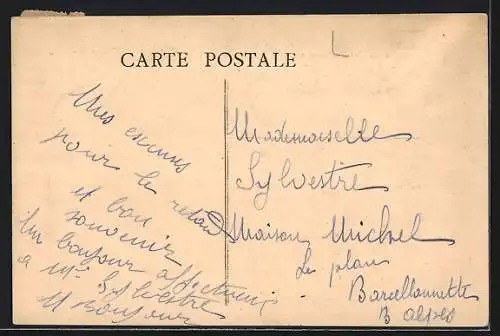 CARTE POSTALE
L
Mes excuses
pour le retard
et bon
souvenir
Un bonjour affectueux
a Mr Sylvestre
Mademoiselle
Sylvestre
Maison Michel
Le plan
Barcellonnette
B alpes